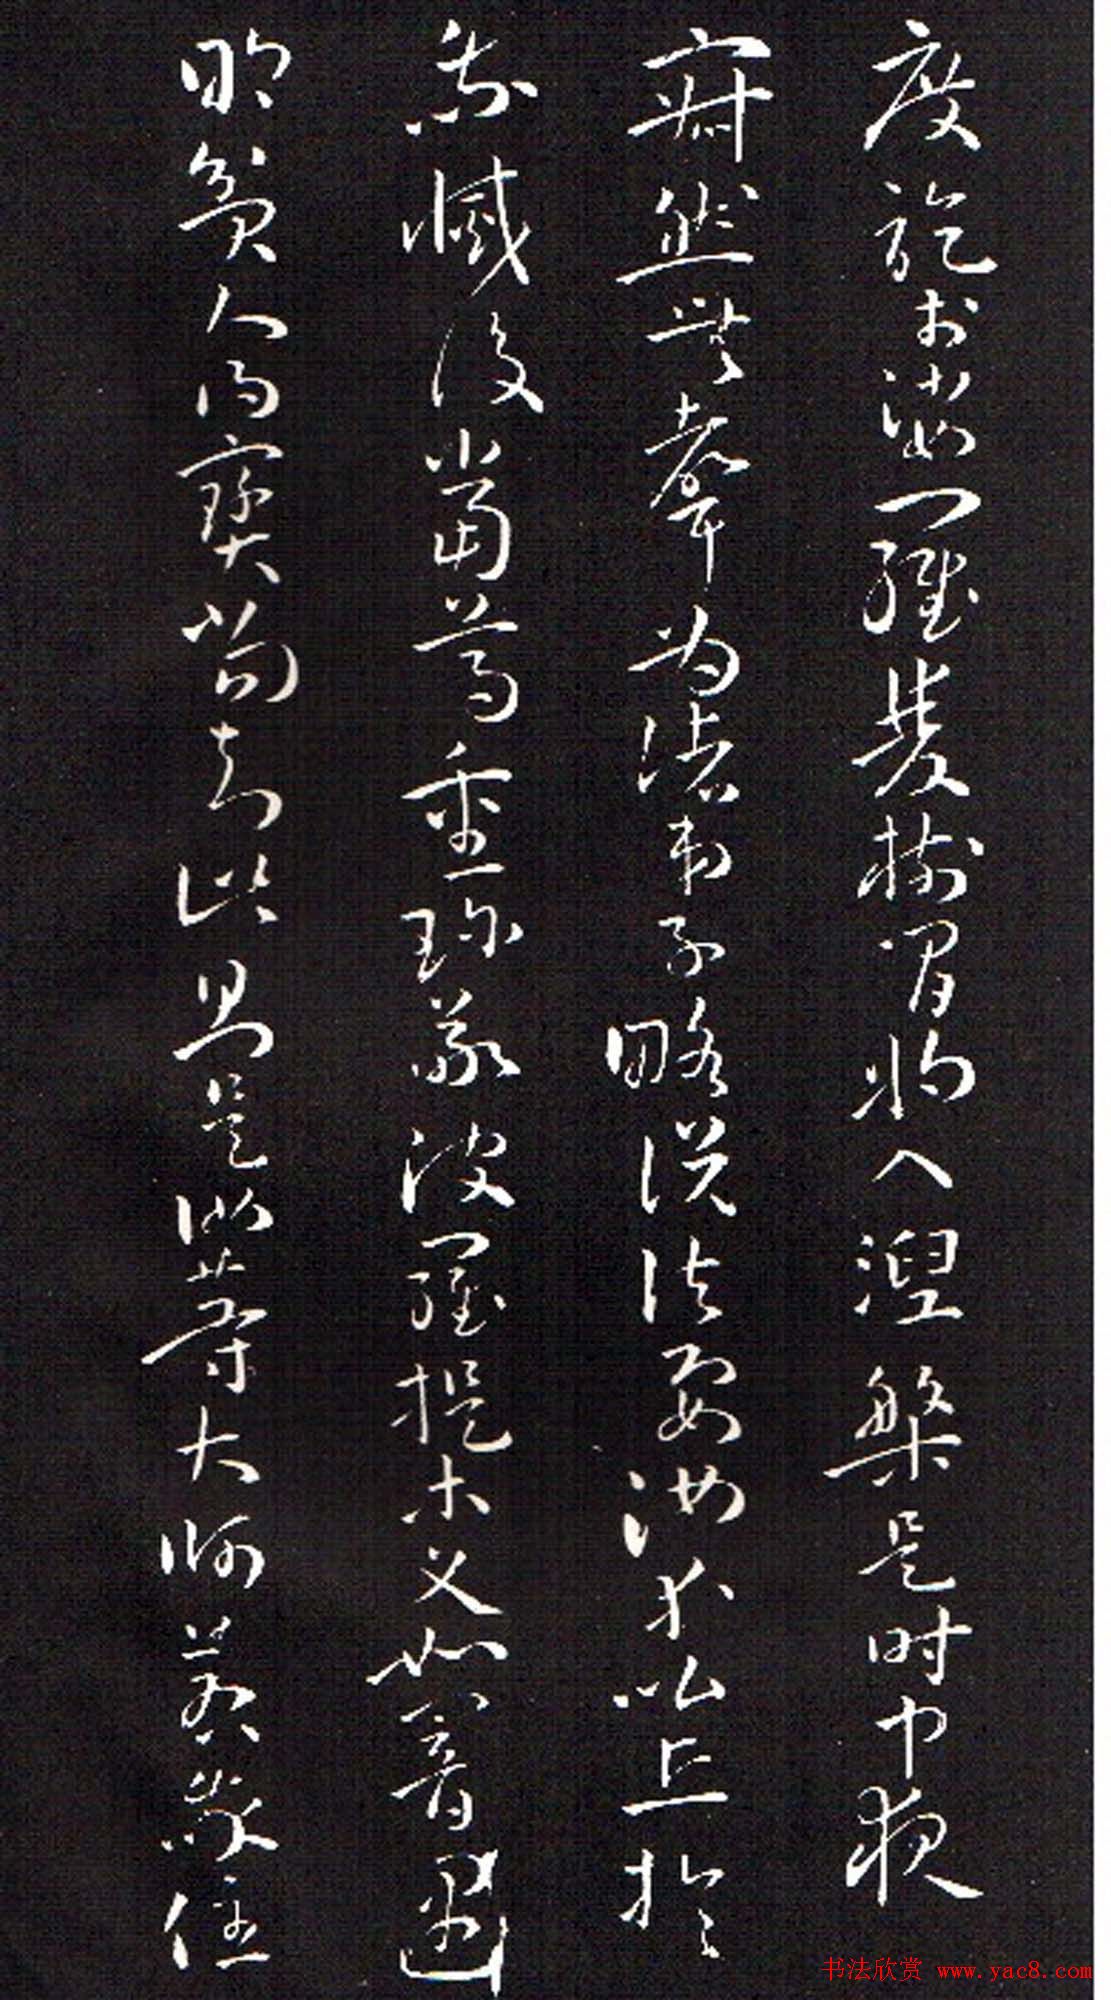 度訖於娑羅雙樹間將入涅槃是時中夜
寂然無聲為諸弟子略說法要汝等比丘於
我滅後當尊重珍敬波羅提木叉如闇遇
明貧人得寶當知此則是汝等大師若我住
书法欣赏 www.yac8.com